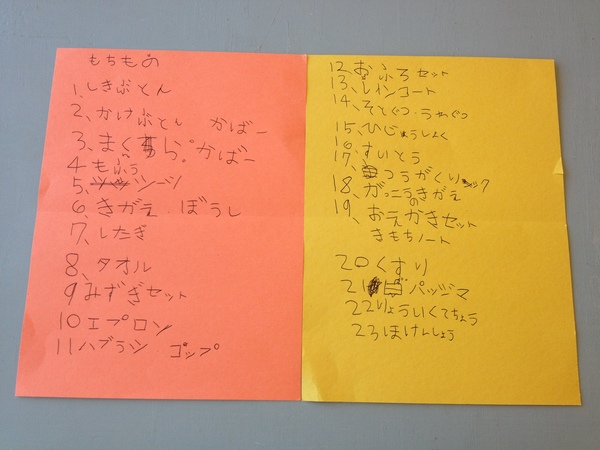 もちもの
1.しきぶとん
2、かけぶとん かばー
3、まくら。かばー
4もふう
5、シーツ
6、きがえ ぼうし
7、したぎ
8、タオル
9みずぎセット
10エプロン
11ハブラシ ゴップ
12、おふろセット
13、レインコート
14、そとぐつ・うわぐつ
15、ひじょうしょく
16、すいとう
17、つうがくリック
18、がっこうのきがえ
19、おえかきセット
きもちノート
20くすり
21パッジマ
22りょういくてちょう
23ほけんしょう